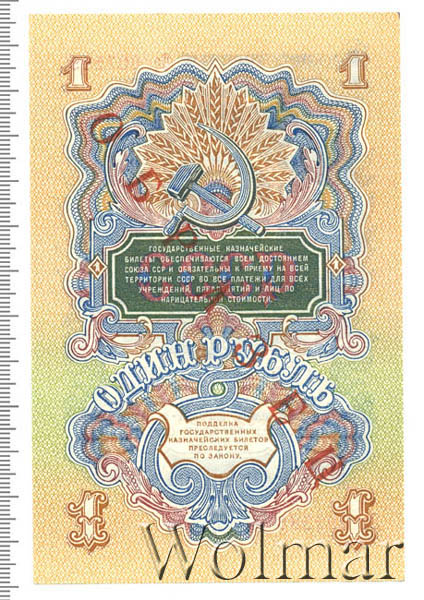 1 1
ГОСУДАРСТВЕННЫЕ КАЗНАЧЕЙСКИЕ
БИЛЕТЫ ОБЕСПЕЧИВАЮТСЯ ВСЕМ ДОСТОЯНИЕМ
СОЮЗА ССР И ОБЯЗАТЕЛЬНЫ К ПРИЕМУ НА ВСЕЙ
1 ТЕРРИТОРИИ СССР ВО ВСЕ ПЛАТЕЖИ ДЛЯ ВСЕХ 1
УЧРЕЖДЕНИЙ, ПРЕДПРИЯТИЙ И ЛИЦ ПО
НАРИЦАТЕЛЬНОЙ СТОИМОСТИ.
ОБРАЗЕЦ
ОДИН РУБЛЬ
ПОДДЕЛКА
ГОСУДАРСТВЕННЫХ
КАЗНАЧЕЙСКИХ БИЛЕТОВ
ПРЕСЛЕДУЕТСЯ
ПО ЗАКОНУ.
1 1
Wolmar